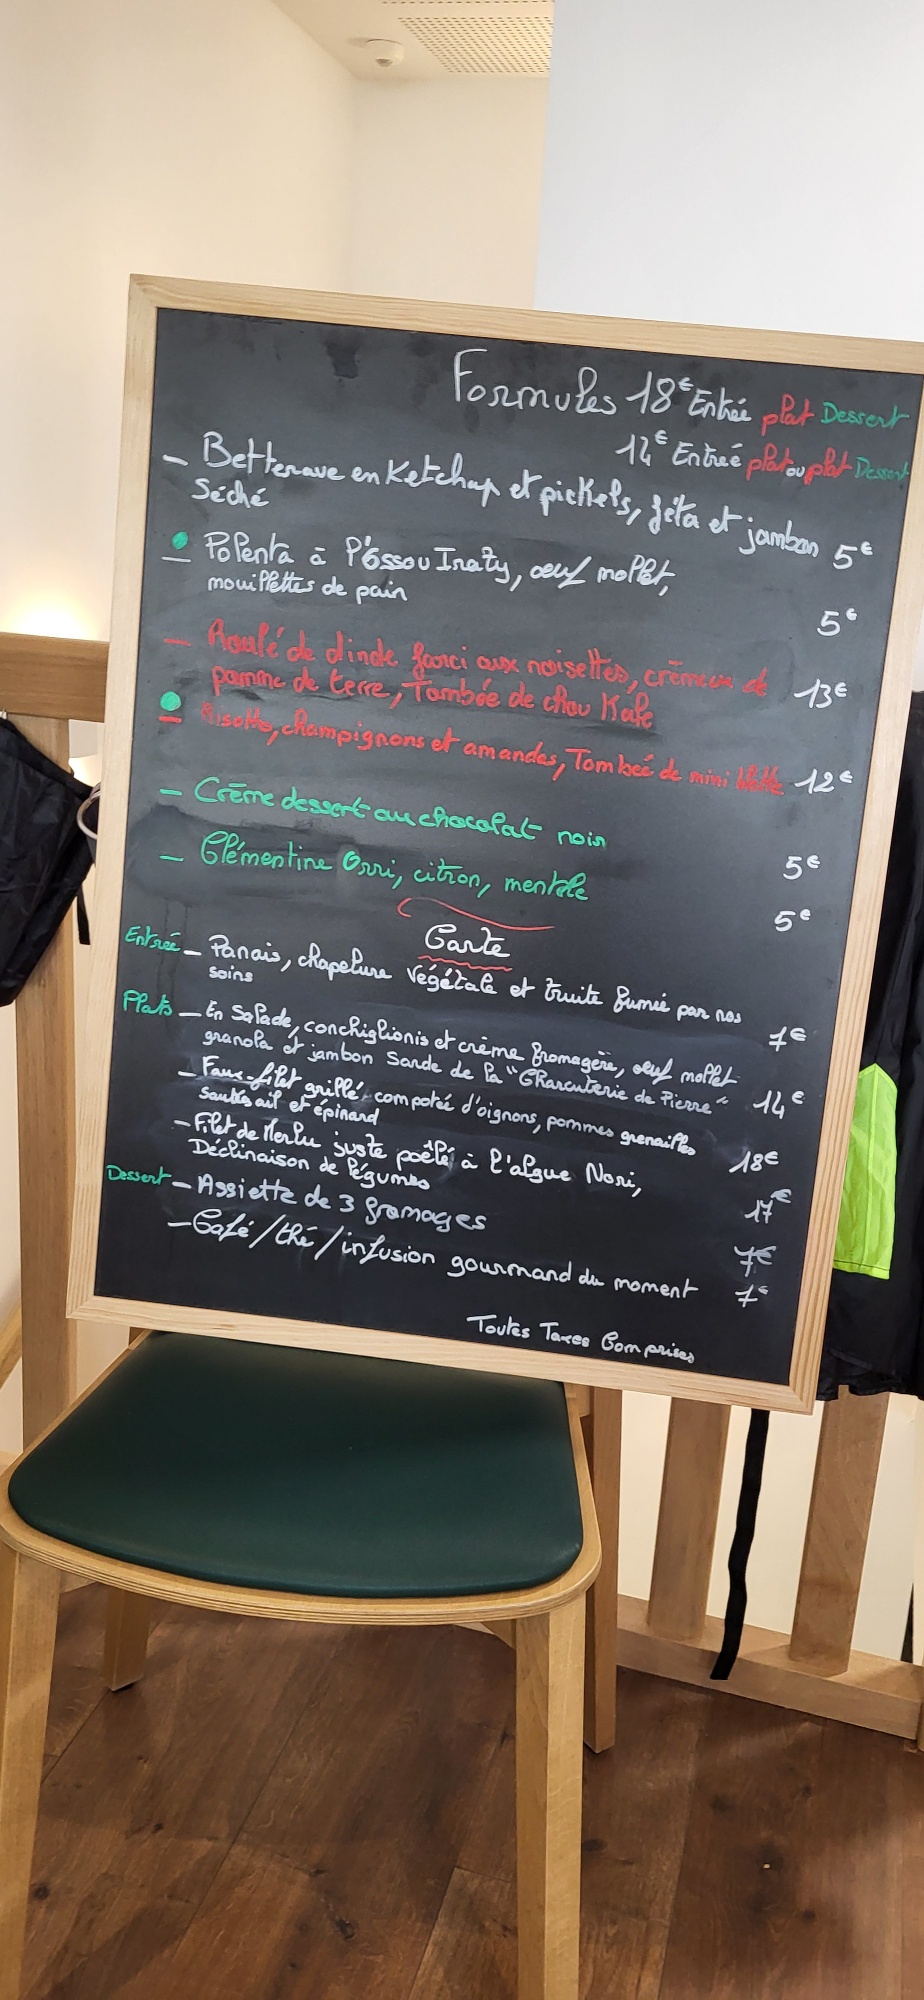 Formules 18€ Entrée plat Dessert
14€ Entrée plat ou plat Dessert
- Betterave en Ketchup et pickels, féta et jambon
Séché 5€
- Polenta à l'Ossou Iraty, œuf mollet,
mouillettes de pain 5€
- Roulé de dinde farci aux noisettes, crémeux de
pomme de terre, Tombée de chou Kale 13€
- Risotto, champignons et amandes, Tombée de mini 12€
- Crème dessert au chocolat noir 5€
- Clémentine Orri, citron, menthe 5€
Carte
Entrée - Panais, chapelure végétale et truite fumée par nos
soins 7€
Plats - En Salade, conchiglionis et crème fromagère, œuf mollet
granola et jambon Sarde de la "Charcuterie de Pierre" 14€
- Faux-filet grillé, compotée d'oignons, pommes grenailles
sautés ail et épinard 18€
- Filet de Merlu juste poêlé à l'algue Nori,
Déclinaison de légumes 17€
Dessert - Assiette de 3 fromages 7€
- Café / thé / infusion gourmand du moment 7€
Toutes Taxes Comprises